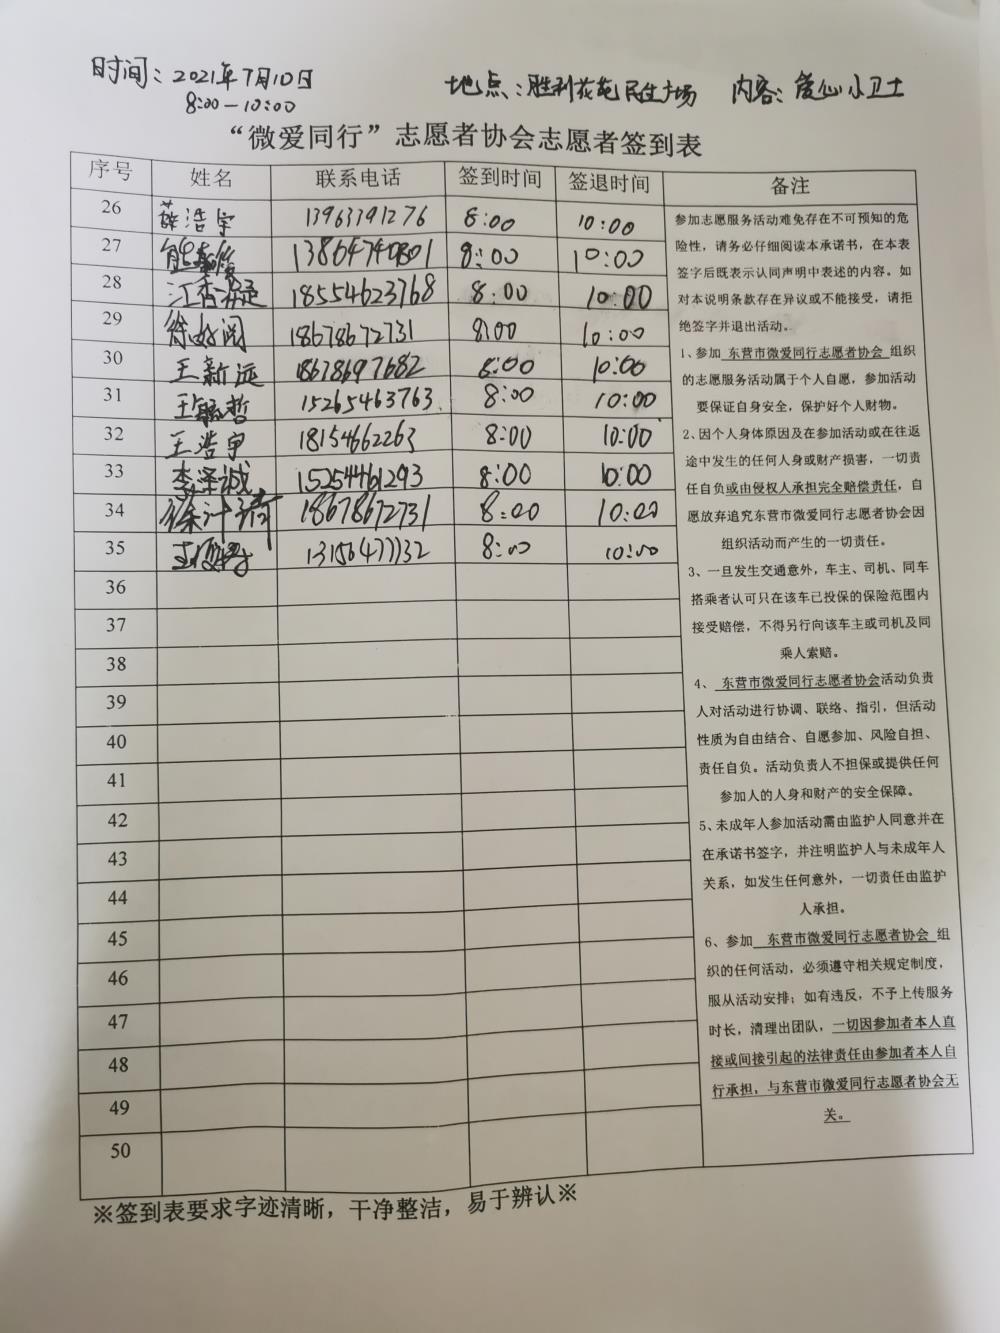 时间：2021年7月10日
8:00—10:00
地点：胜利花苑民生广场
内容：爱心小卫士
“微爱同行”志愿者协会志愿者签到表
序号 姓名 联系电话 签到时间 签退时间 备注
26 薛浩宇 13963391276 8:00 10:00
27 8:00 10:00
28 18554623768 8:00 10:00
29 18678672731 8:00 10:00
30 王新远 18678697682 8:00 10:00
31 15265463763 8:00 10:00
32 王浩宇 18154662263 8:00 10:00
33 李泽诚 15254461293 8:00 10:00
34 18678672731 8:00 10:00
35 13156477732 8:00 10:00
36
37
38
39
40
41
42
43
44
45
46
47
48
49
50
参加志愿服务活动难免存在不可预知的危
险性，请务必仔细阅读本承诺书，在本表
签字后既表示认同声明中表述的内容。如
对本说明条款存在异议或不能接受，请拒
绝签字并退出活动。
1、参加 东营市微爱同行志愿者协会 组织
的志愿服务活动属于个人自愿，参加活动
要保证自身安全，保护好个人财物。
2、因个人身体原因及在参加活动或在往返
途中发生的任何人身或财产损害，一切责
任自负或由侵权人承担完全赔偿责任，自
愿放弃追究东营市微爱同行志愿者协会因
组织活动而产生的一切责任。
3、一旦发生交通意外，车主、司机、同车
搭乘者认可只在该车已投保的保险范围内
接受赔偿，不得另行向该车主或司机及同
乘人索赔。
4、 东营市微爱同行志愿者协会活动负责
人对活动进行协调、联络、指引，但活动
性质为自由结合、自愿参加、风险自担、
责任自负。活动负责人不担保或提供任何
参加人的人身和财产的安全保障。
5、未成年人参加活动需由监护人同意并在
在承诺书签字，并注明监护人与未成年人
关系，如发生任何意外，一切责任由监护
人承担。
6、参加 东营市微爱同行志愿者协会 组
织的任何活动，必须遵守相关规定制度，
服从活动安排；如有违反，不予上传服务
时长，清理出团队，一切因参加者本人直
接或间接引起的法律责任由参加者本人自
行承担，与东营市微爱同行志愿者协会无
关。
※签到表要求字迹清晰，干净整洁，易于辨认※